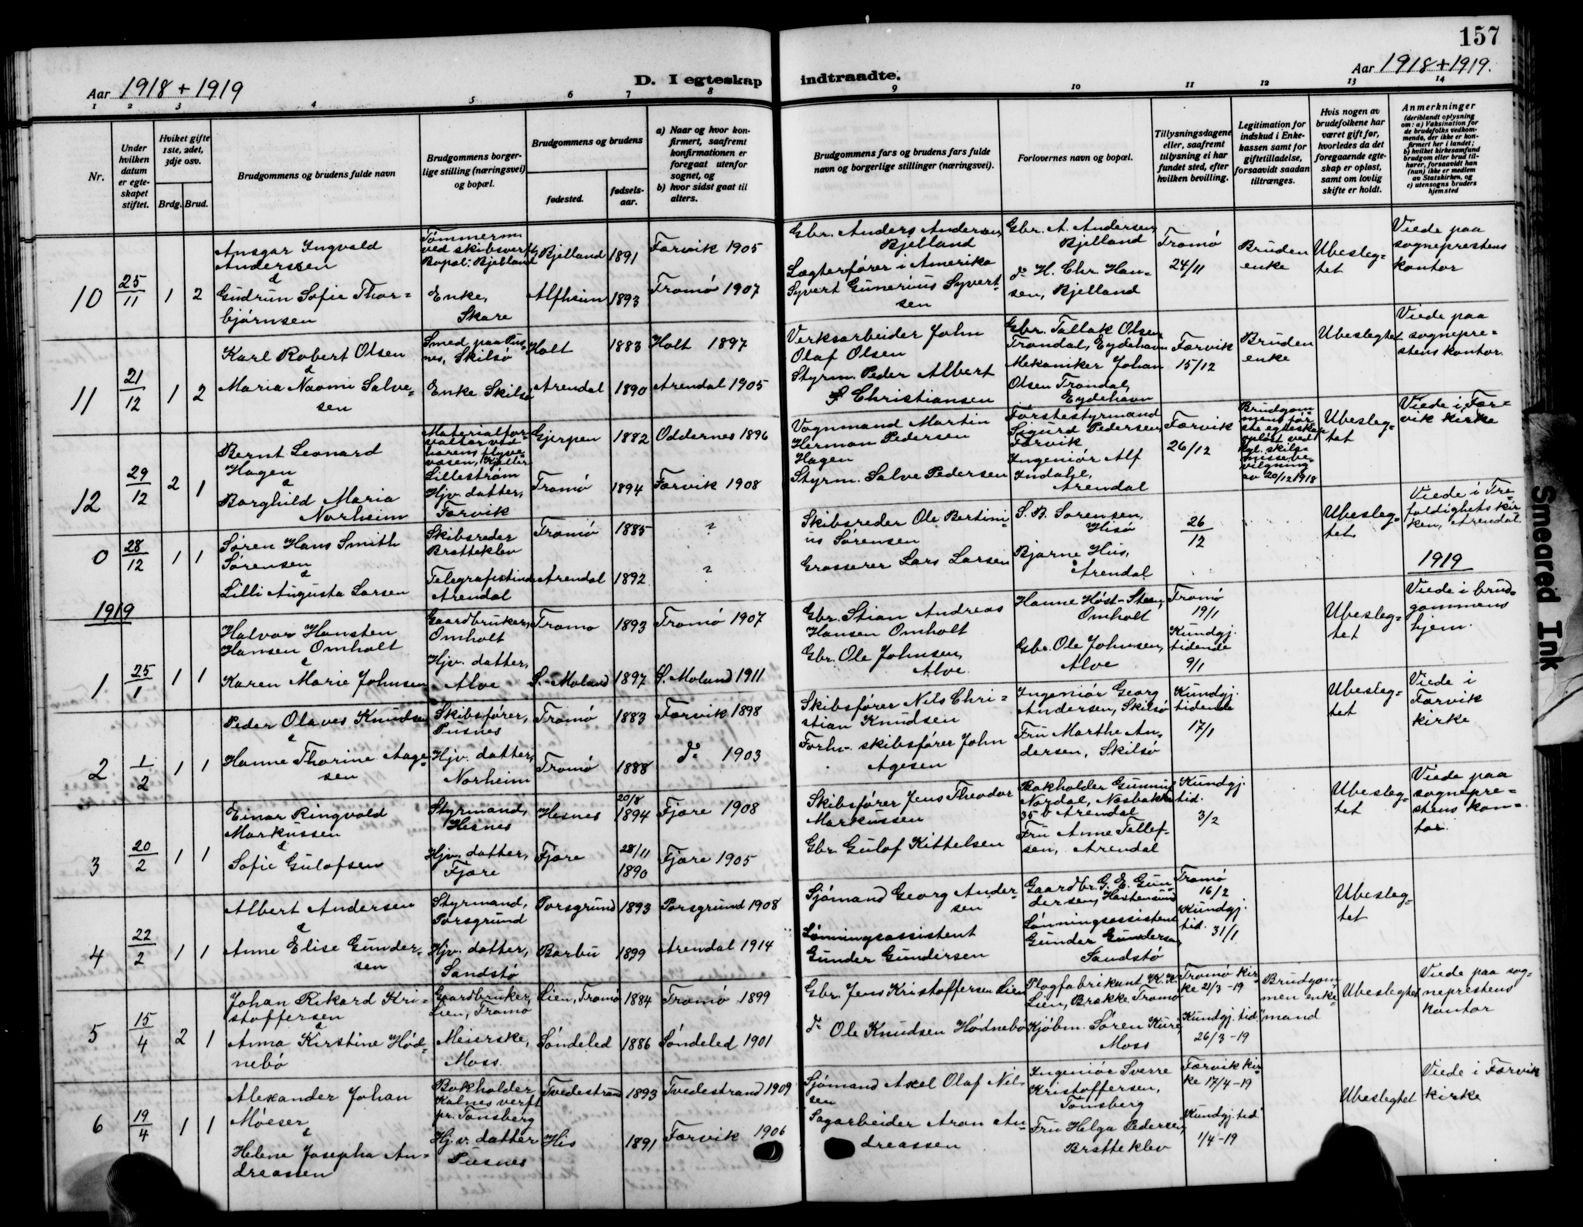 157
Aar 1918 + 1919
D. I egteskap
indtraadte.
Aar 1918 + 1919.
1 2 3 4 5 6 7 8 9 10 11 12 13 14
Nr.
Under hvilken datum er egteskapet stiftet.
Hvilket gifte 1ste, 2det, 3dje osv.
Brdg. Brud.
Brudgommens og brudens fulde navn
Brudgommens borgerlige stilling (næringsvei) og bopæl.
Brudgommens og brudens
fødested.
fødselsaar.
a) Naar og hvor konfirmert, saafremt konfirmationen er foregaat utenfor sognet, og
b) hvor sidst gaat til alters.
Brudgommens fars og brudens fars fulde navn og borgerlige stillinger (næringsvei).
Forlovernes navn og bopæl.
Tillysningsdagene eller, saafremt tillysning ei har fundet sted, efter hvilken bevilling.
Legitimation for indskud i Enkekassen samt for giftetilladelse, forsaavidt saadan tiltrænges.
Hvis nogen av brudefolkene har været gift før, hvorledes da det foregaaende egteskap er opløst, samt om lovlig skifte er holdt.
Anmerkninger
(deriblandt oplysning om: a) Vaksination for de brudefolks vedkommende, der ikke er konfirmert her i landet; b) hvilket kirkesamfund brudgom eller brud tilhører, forsaavidt han (hun) ikke er medlem av Statskirken, og c) utensogns bruders hjemsted
10 25/11 1 2
Ansgar Ingvald Anderssen
&
Gudrun Sofie Thorbjörnsen
Tömmerm. ved skibsverft Bopæl: Bjelland
Enke, Skare
Bjelland 1891 Færvik 1905
Alfheim 1893 Tromö 1907
Gbr. Anders Andersen, Bjelland
Lægterförer i Amerika Syvert Gunerius Syvertsen
Gbr. A. Andersen, Bjelland
do H. Chr. Hansen, Bjelland
Tromö 24/11
Bruden enke
Ubeslegtet
Viede paa sogneprestens kontor
11 21/12 1 2
Karl Robert Olsen
&
Maria Naomi Salvesen
Smed paa Pusnes, Skilsö
Enke Skilsö
Holt 1883 Holt 1897
Arendal 1890 Arendal 1905
Verksarbeider John Olaf Olsen
Styrm. Peder Albert Christiansen
Gbr. Tallak Olsen Trondal, Eydehavn
Mekaniker Johan Olsen Trondal, Eydehavn
Færvik 15/12
Bruden enke
Ubeslegtet
Viede paa sogneprestens kontor.
12 29/12 2 1
Bernt Leonard Hagen
&
Borghild Maria Norheim
Materialforvalter ved hærens flyvevæsen, Kjeller Lilleström
Hjv. datter, Færvik
Gjerpen 1882 Oddernes 1896
Tromö 1894 Færvik 1908
Vognmand Martin Herman Pedersen Hagen
Styrm. Salve Pedersen
Förstestyrmand Sigurd Pedersen, Færvik
Ingeniör Alf Indahl, Arendal
Færvik 26/12
Brudgommens förste egteskap oplöst ved kgl. skilsmissebevilgning av 20/12 1918
Ubeslegtet
Viede i Færvik kirke
0 28/12 1 1
Sören Hans Smith Sörensen
&
Lilli Augusta Larsen
Skibsreder Bratteklev
Telegrafistinde Arendal
Tromö 1885 ?
Arendal 1892 ?
Skibsreder Ole Bertinius Sörensen
Grosserer Lars Larsen
S. B. Sörensen, Hisö
Bjarne Hus, Arendal
26/12
Ubeslegtet
Viede i Trefoldighetskirken, Arendal
1919
1919
1 25/1 1 1
Halvor Hansten Hansen Omholt
&
Karen Marie Johnsen
Gaardbruker, Omholt
Hjv. datter, Alve
Tromö 1893 Tromö 1907
Ö. Moland 1897 Ö. Moland 1911
Gbr. Stian Andreas Hansen Omholt
Gbr. Ole Johnsen, Alve
Hanne Höst-Steen, Omholt
Gbr. Ole Johnsen, Alve
Tromö 19/1
Kundgj. tidende 9/1
Ubeslegtet
Viede i brudgommens hjem.
2 1/2 1 1
Peder Olaves Knudsen
&
Hanne Thorine Aagesen
Skibsförer, Pusnes
Hjv. datter, Norheim
Tromö 1883 Færvik 1898
Tromö 1888 do 1903
Skibsförer Nils Christian Knudsen
Forhv. skibsförer John Agesen
Ingeniör Georg Andersen, Skilsö
Fru Marthe Andersen, Skilsö
Kundgj. tidende 17/1
Ubeslegtet
Viede i Færvik kirke
3 20/2 1 1
Einar Ringvald Markussen
&
Sofie Gulofsen
Styrmand, Hesnes
Hjv. datter, Fjære
Hesnes 20/8 1894 Fjære 1908
Fjære 28/11 1890 Fjære 1905
Skibsförer Jens Theodor Markussen
Gbr. Gulof Kittelsen
Bokholder Gunnar Nordal, Næsbakken 35 b Arendal
Fru Anne Tellefsen, Arendal
Kundgj. tid. 3/2
Ubeslegtet
Viede paa sogneprestens kontor.
4 22/2 1 1
Albert Andersen
&
Anne Elise Gundersen
Styrmand, Porsgrund
Hjv. datter, Sandstö
Porsgrund 1893 Porsgrund 1908
Barbu 1899 Arendal 1914
Sjömand Georg Andersen
Lönningsassistent Gunder Gundersen
Gaardbr. G. E. Gundersen, Hastensund
Lönningsassistent Gunder Gundersen, Sandstö
Tromö 16/2
Kundgj. tid. 31/1
Ubeslegtet
5 15/4 2 1
Johan Rikard Kristoffersen
&
Anna Kirstine Hödnebö
Gaardbruker, Lien, Tromö
Meierske, Moss
Lien, Tromö 1884 Tromö 1899
Söndeled 1886 Söndeled 1901
Gbr. Jens Kristoffersen Lien
do Ole Knudsen Hödnebö
Plogfabrikant K. K. Lien, Brekke Tromö
Kjöbm. Sören Kure Moss
Tromö kirke 21/3-19
Kundgj. tid. 26/3-19
Brudgommen enkemand
Ubeslegtet
Viede paa sogneprestens kontor
6 19/4 1 1
Alexander Johan Möeser
&
Helene Josepha Andreassen
Bokholder Kalnes verft pr. Tönsberg
Hjv. datter Pusnes
Tvedestrand 1893 Tvedestrand 1909
His 1891 Færvik 1906
Sjömand Axel Olaf Nilssen
Sagarbeider Aron Andreassen
Ingeniör Sverre Kristoffersen, Tönsberg
Fru Helga Pedersen, Bratteklev
Færvik kirke 17/4-19
Kundgj. tid 1/4-19
Ubeslegtet
Viede i Færvik kirke
Smeared Ink